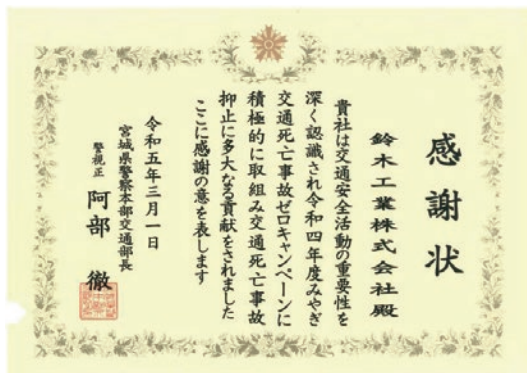 感謝状
鈴木工業株式会社殿
貴社は交通安全活動の重要性を
深く認識され令和四年度みやぎ
交通死亡事故ゼロキャンペーンに
積極的に取組み交通死亡事故
抑止に多大なる貢献をされました
ここに感謝の意を表します
令和五年三月一日
宮城県警察本部交通部長
警視正 阿部 徹